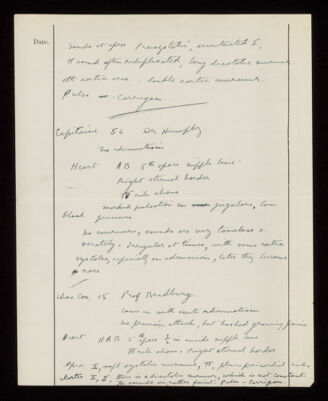 Date.
Sounds at apex Presystolic, accentuated I,
II sound often reduplicated, long diastolic murmur.
At aortic area - double aortic murmur.
Pulse - Corrigan
Capitaine 56 Dr Humphry.
No rheumatism
Heart AB 5th space nipple line.
Right sternal border
rib above
marked pulsation in jugulars, low
blood pressure
No murmurs, sounds are very toneless &
scratchy. Irregular at times, with some extra
systoles, especially on admission, later they become
rare
Chas Cox 15 Prof Bradbury.
Came in with acute rheumatism
No previous attack, but has had growing pains
Heart AAB 5th space ½ in inside nipple line
III rib above. Right sternal border
Apex I, soft systolic murmur, II, pleuro-pericardial rub.
Aortic I, II, there is a diastolic murmur, which is not constant.
The sounds are rather faint. Pulse - Corrigan.